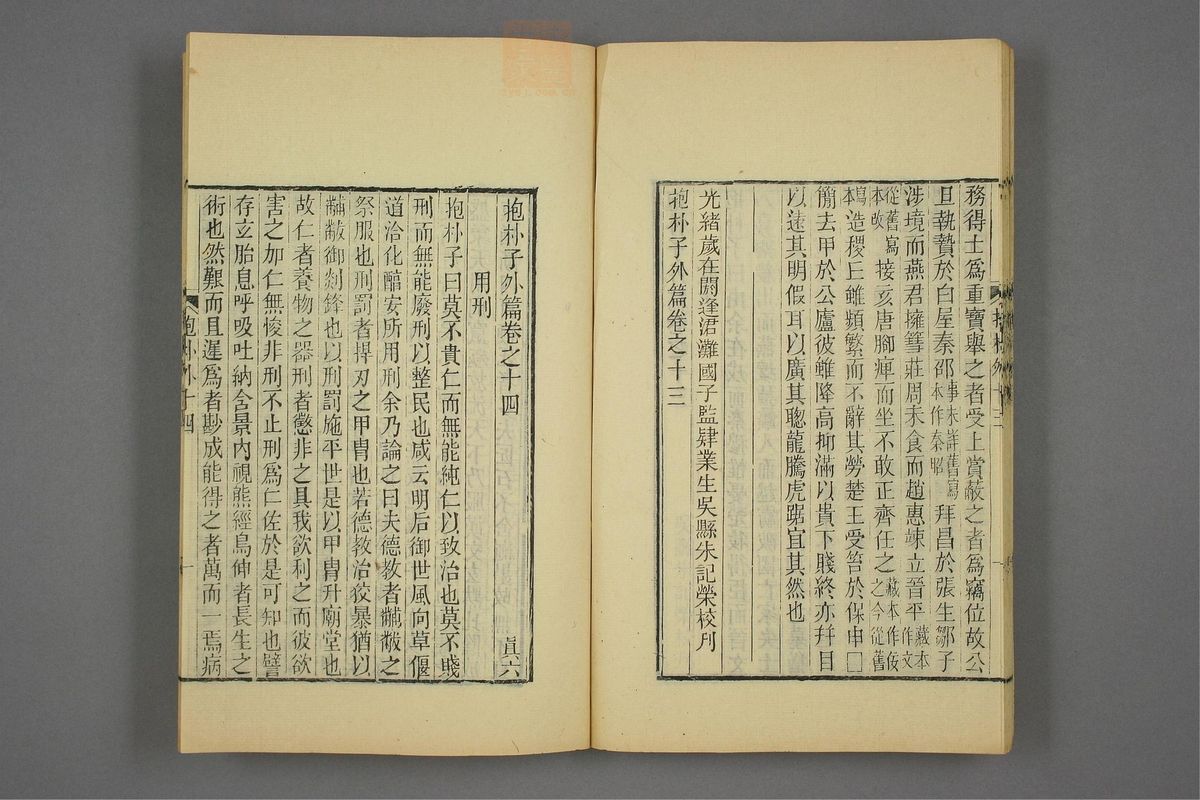 務得士爲重寶舉之者受上賞蔽之者爲竊位故公
旦執贄於白屋秦邵本作秦昭事未詳舊寫拜昌於張生鄒子
涉境而燕君擁篲莊周未食而趙惠竦立晉平藏本作文
從舊寫本改接亥唐腳痺而坐不敢正齊任之藏本作伎之今從舊
寫本造稷丘雖頻繁而不辭其勞楚王受笞於保申□
簡去甲於公廬彼雖降高抑滿以貴下賤終亦幷目
以遠其明假耳以廣其聰龍騰虎踞宜其然也
光緒歲在閼逢涒灘國子監肄業生吳縣朱記榮校刊
抱朴子外篇卷之十三
抱朴外十三
抱朴子外篇卷之十四 真六
用刑
抱朴子曰莫不貴仁而無能純仁以致治也莫不賤
刑而無能廢刑以整民也咸云明后御世風向草偃
道洽化醇安所用刑余乃論之曰夫德教者黼黻之
祭服也刑罰者捍刃之甲胄也若德教治狡暴猶以
黼黻御剡鋒也以刑罰施平世是以甲胄升廟堂也
故仁者養物之器刑者懲非之具我欲利之而彼欲
害之加仁無悛非刑不止刑爲仁佐於是可知也譬
存玄胎息呼吸吐納含景內視熊經鳥伸者長生之
術也然艱而且遲爲者尠成能得之者萬而一焉病
抱朴外十四
一